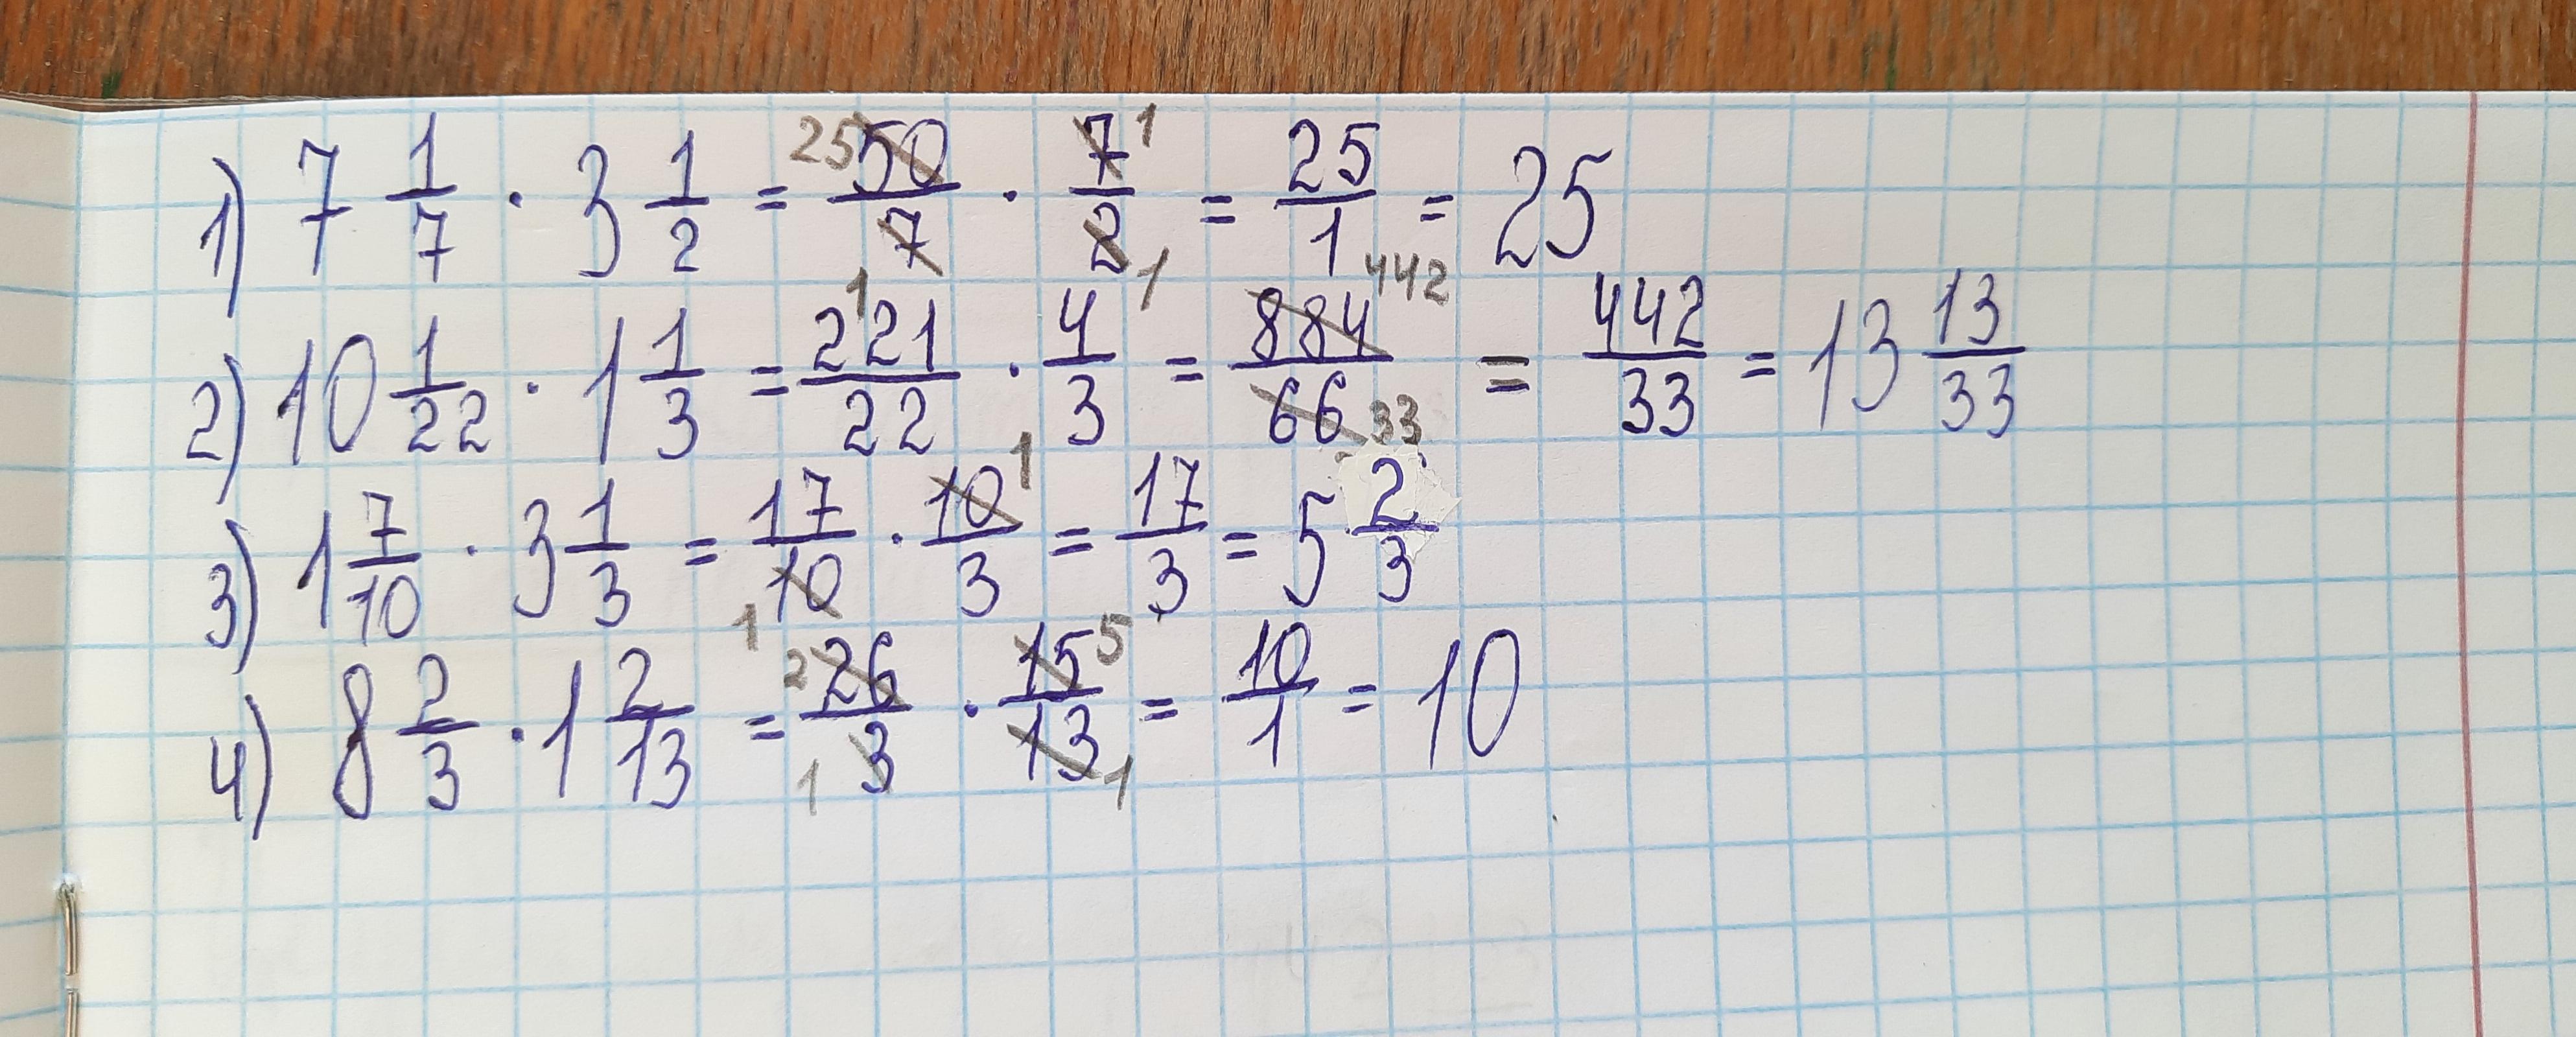 1) 7 1/7 · 3 1/2 = 25 50/7 1 · 7 1/2 1 = 25/1 = 25
2) 10 1/22 · 1 1/3 = 221/22 · 4/3 = 884 442/66 33 = 442/33 = 13 13/33
3) 1 7/10 · 3 1/3 = 17/10 1 · 10 1/3 = 17/3 = 5 2/3
4) 8 2/3 · 1 2/13 = 2 26/3 1 · 15 5/13 1 = 10/1 = 10